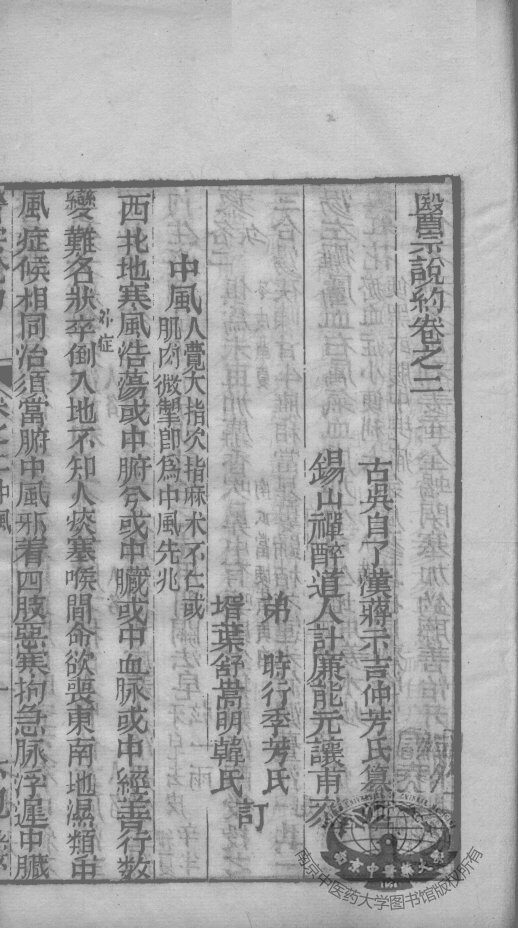 醫宗說約卷之三
古吳自了漢蔣示吉仲芳氏纂
錫山禪醉道人計廉能元讓甫
弟 時行季芳氏
壻葉舒嵩明韓氏
訂
中風 人覺大指次指麻木不仁或
肌肉微掣卽爲中風先兆
西北地寒風浩蕩或中腑兮或中臟或中血脉或中經善行數
變難名狀卒倒入地不知人痰塞喉間命欲喪東南地濕類中
外症
風症候相同治須當腑中風邪着四肢惡寒拘急脉浮遲中臟
南京中医药大学
1954
南京中医药大学图书馆版权所有